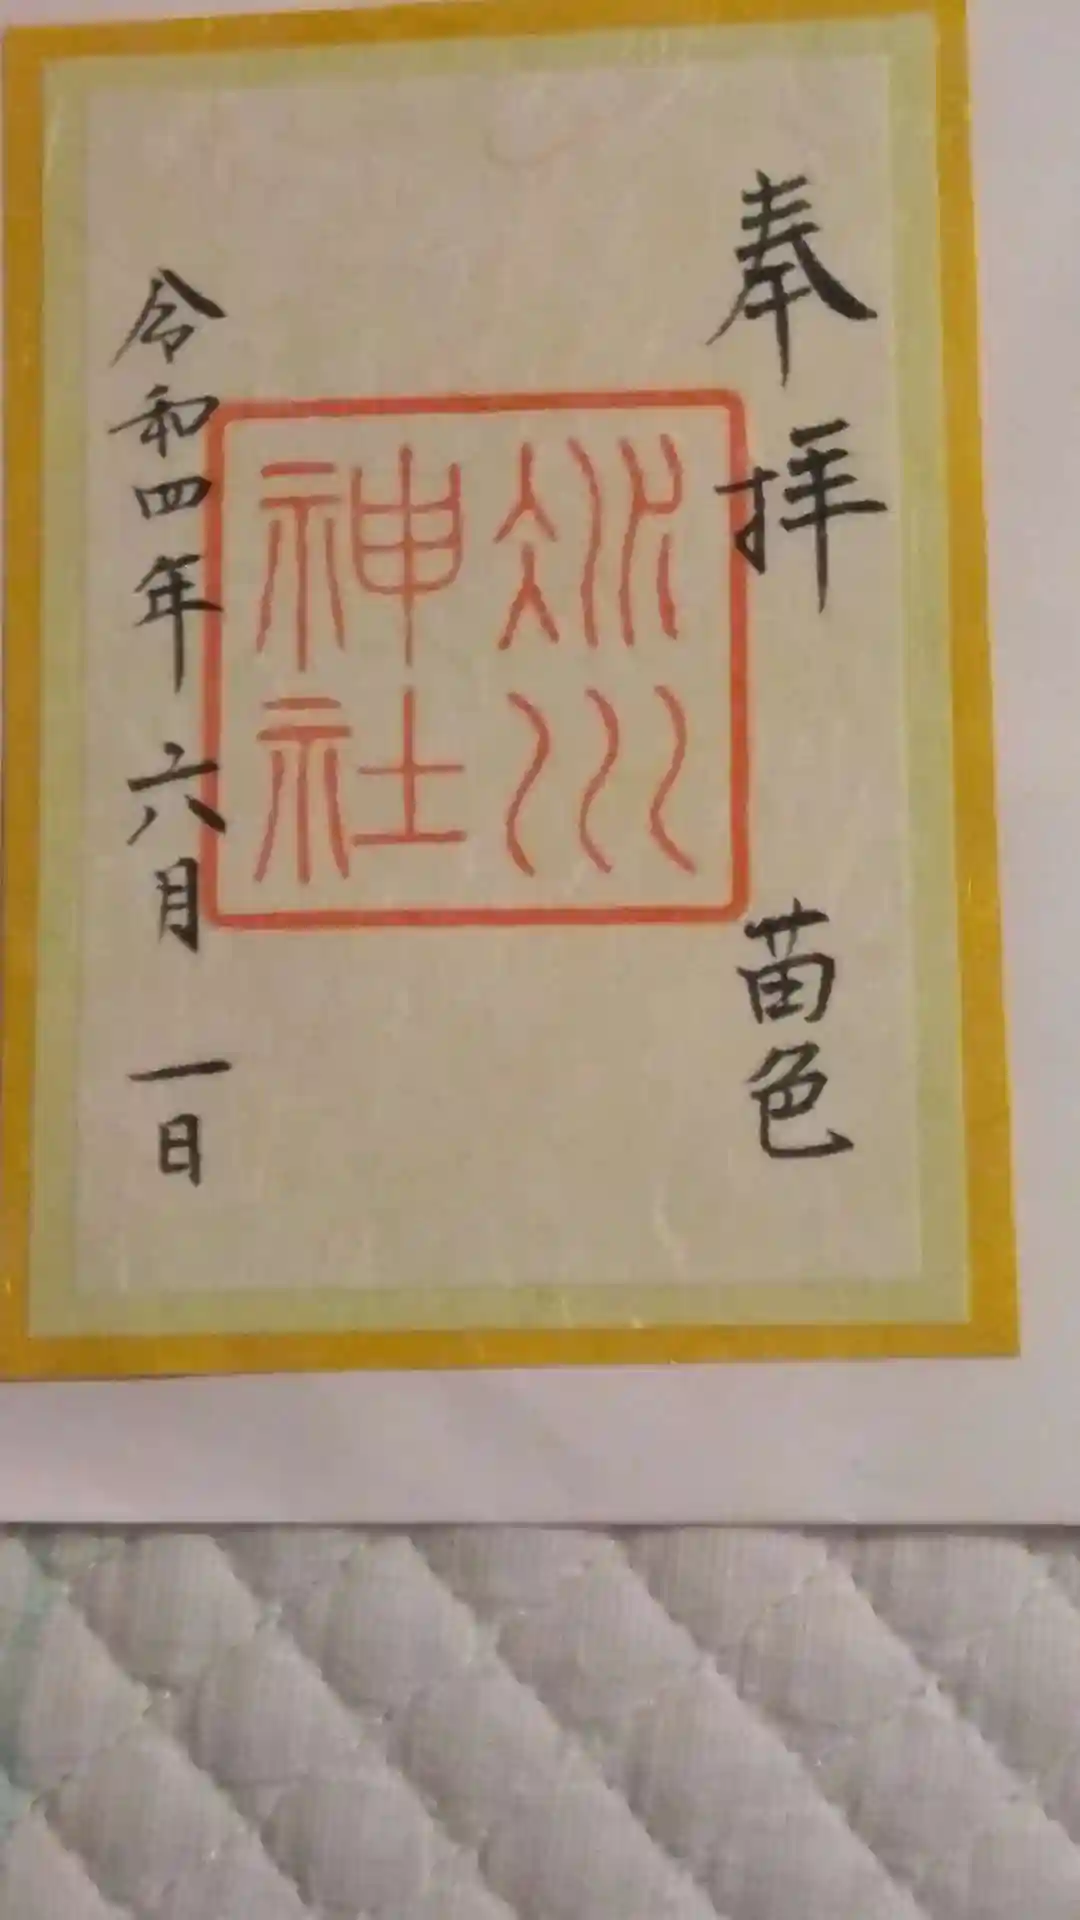 奉拝 苗色
冰川
神社
令和四年六月一日